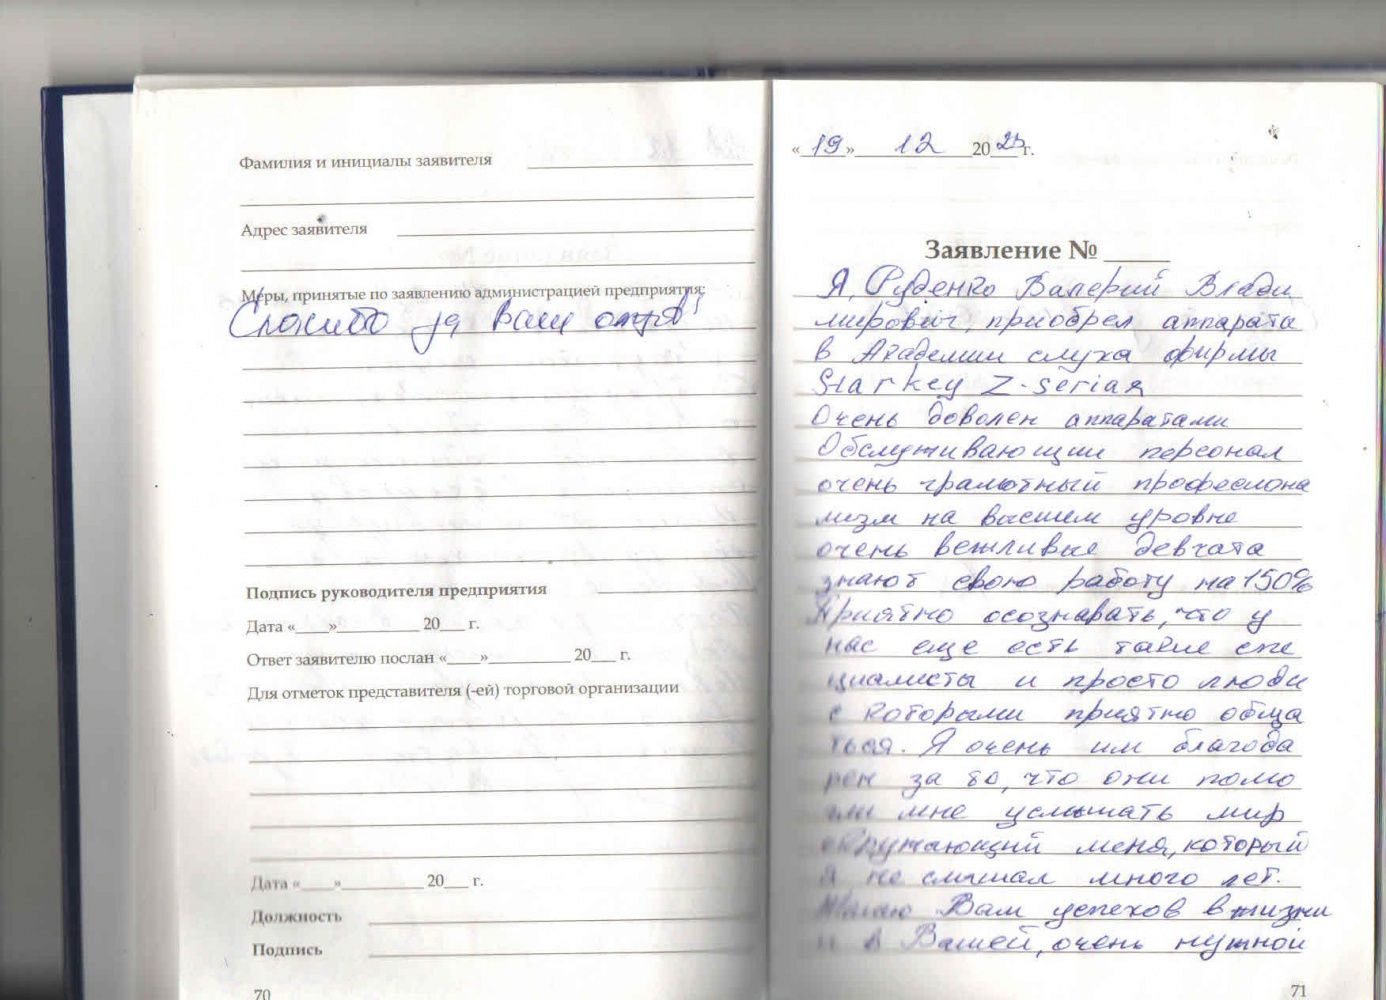 Фамилия и инициалы заявителя
Адрес заявителя
Меры, принятые по заявлению администрацией предприятия:
Спасибо за ваш отзыв!
Подпись руководителя предприятия
Дата «___»__________ 20___ г.
Ответ заявителю послан «___»__________ 20___ г.
Для отметок представителя (-ей) торговой организации
Дата «___»__________ 20___ г.
Должность
Подпись
70
«19» 12 2023 г.
Заявление № _____
Я, Руденко Валерий Влади
мирович, приобрел аппарата
в Академии слуха фирмы
Starkey Z-seriaя
Очень доволен аппаратами
Обслуживающии персонал
очень грамотный професиона
лизм на высшем уровне
очень вежливые девчата
знают свою работу на 150%
Приятно осознавать, что у
нас еще есть такие спе
циалисты и просто люди
с которыми приятно обща
ться. Я очень им благода
рен за то, что они помо
гли мне услышать мир
окружающий меня, который
я не слышал много лет.
Желаю Вам успехов в жизни
и в Вашей, очень нужной
71